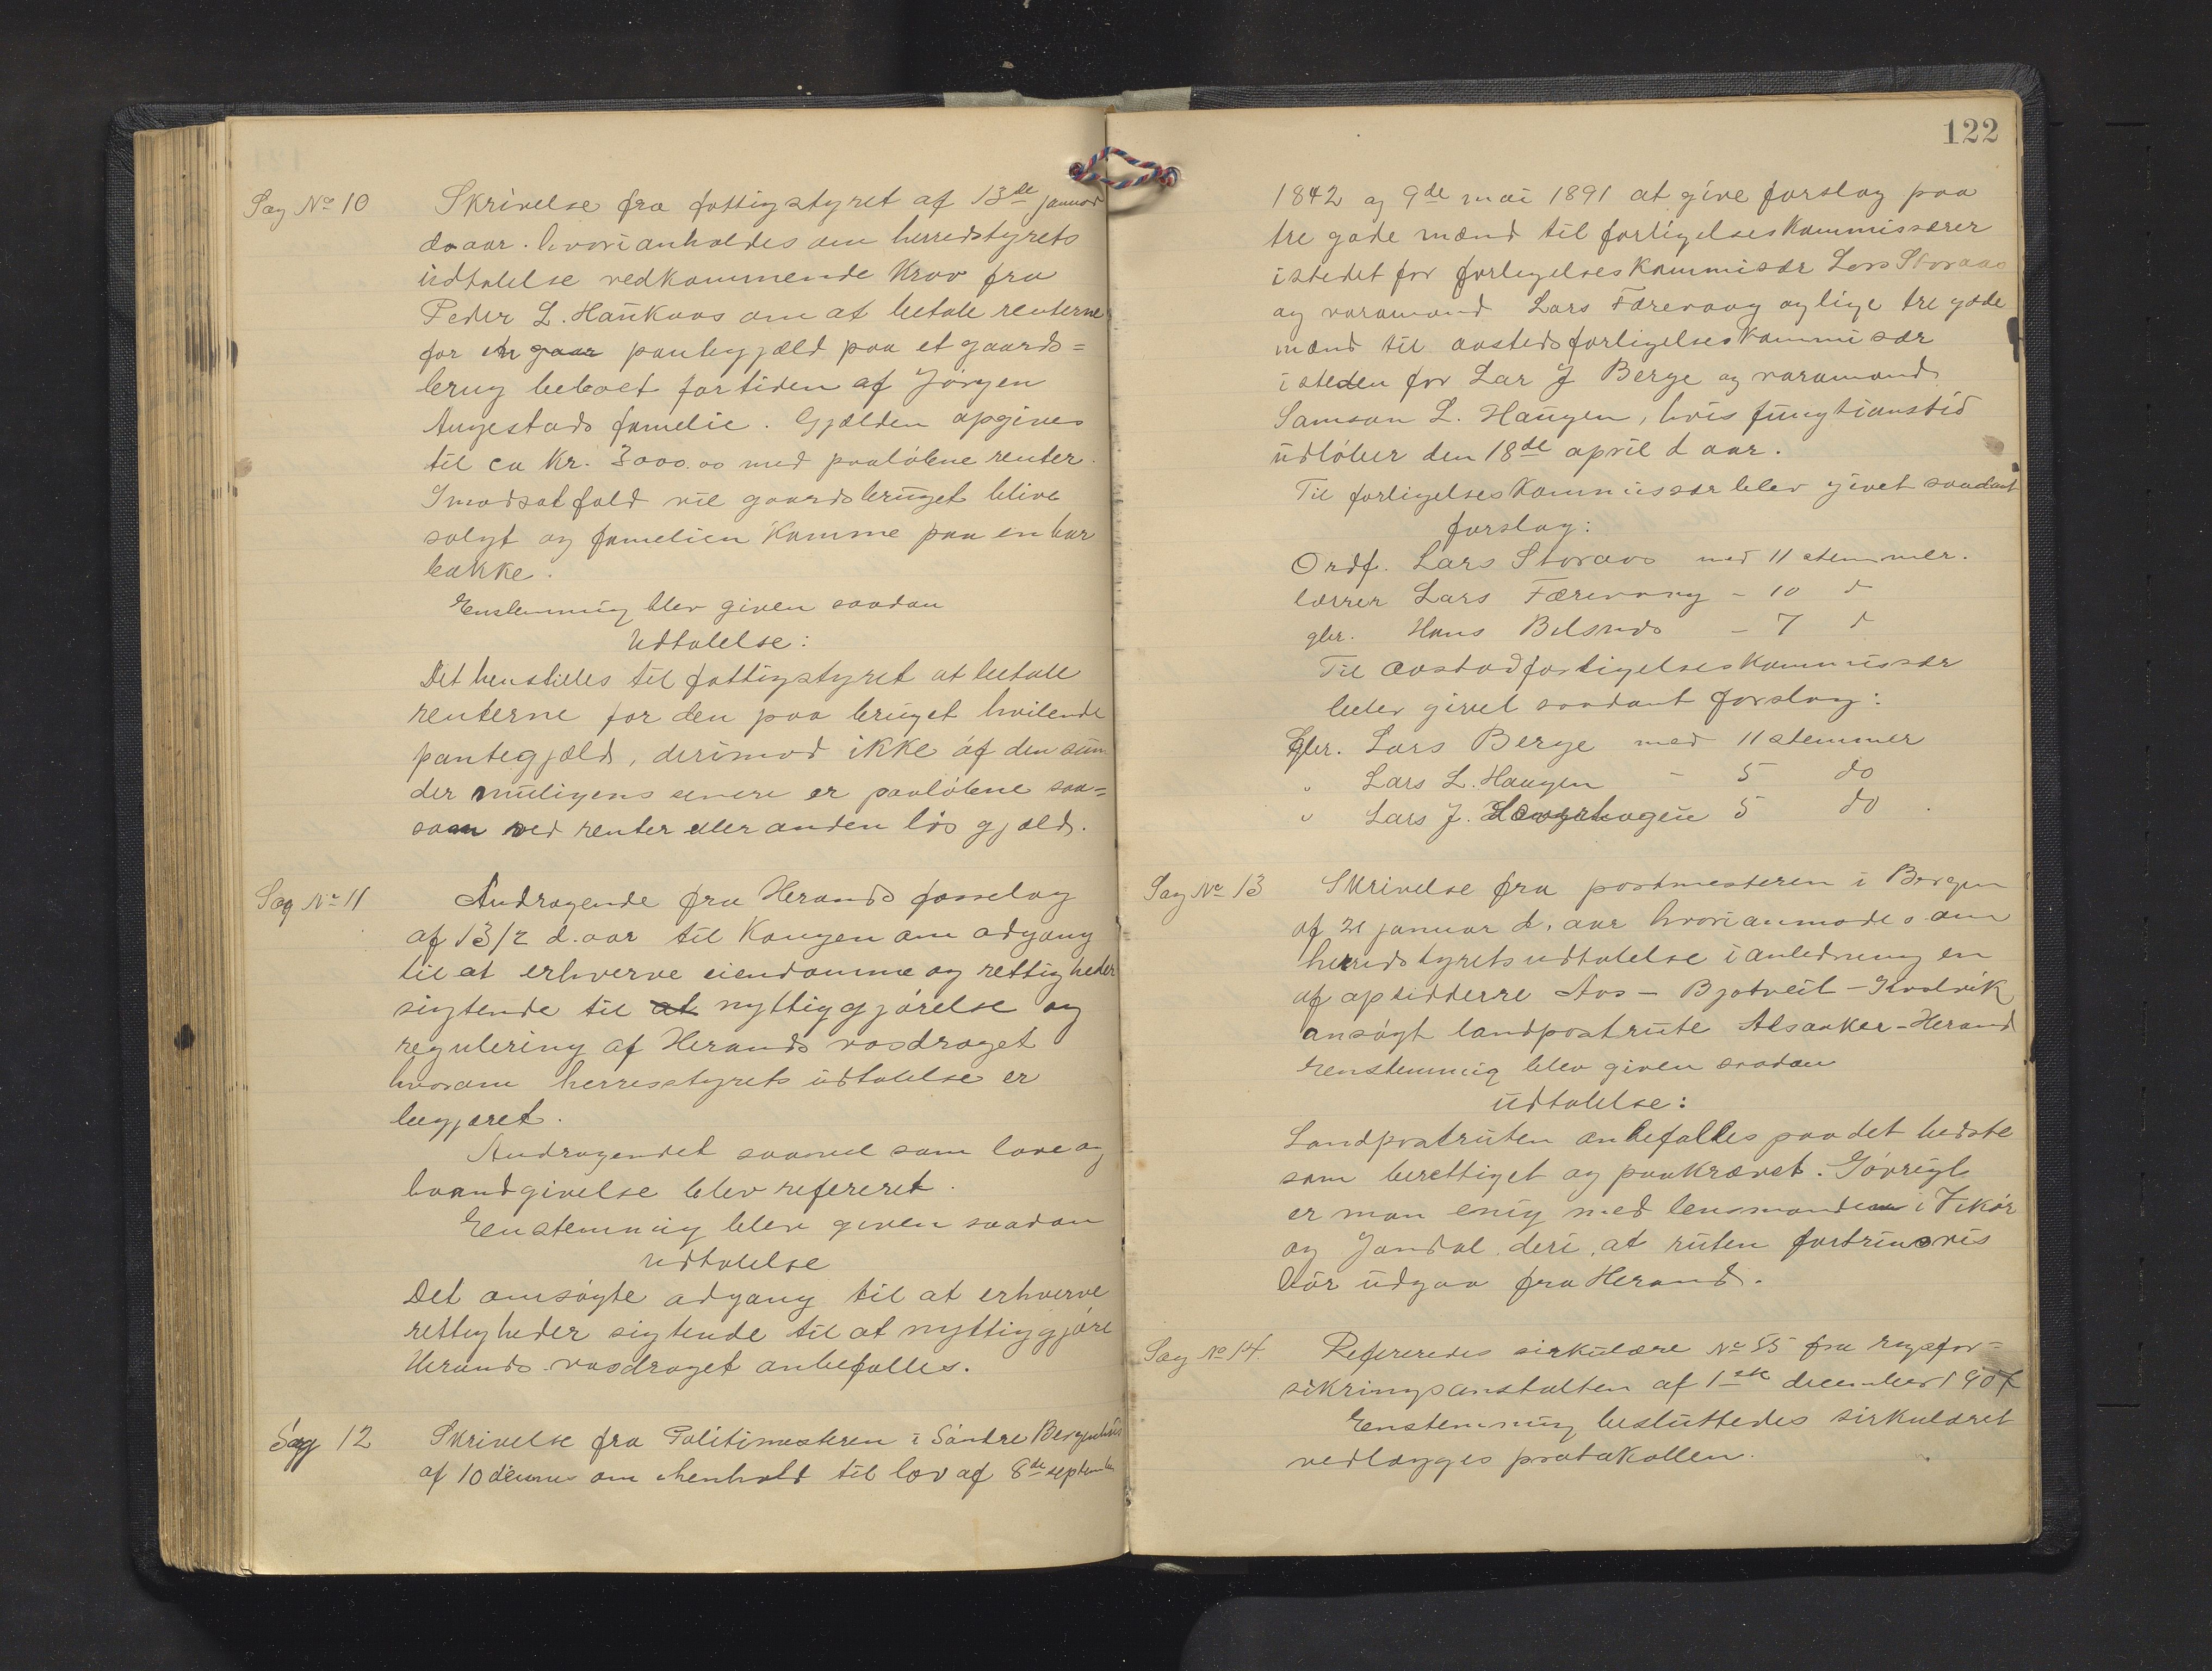 Sag No 10 Skrivelse fra fattigstyret af 13de januar
d. aar. hvori anholdes om herredstyrets
udtalelse vedkommende krav fra
Peder L. Haukaas om at betale renterne
for en gaar pantegjæld paa et gaards=
brug beboet for tiden af Jörgen
Augestads famelie. Gjælden opgives
til ca kr. 3000.00 med paalöbne renter.
I modsat fald vil gaardsbruget blive
solgt og famelien komme paa en bar
bakke.
Enstemmig blev given saadan
Udtalelse:
Det henstilles til fattigstyret at betale
renterne for den paa bruget hvilende
pantegjæld, derimod ikke af den sum
der muligens senere er paalöbne saa=
som ved renter eller anden lös gjæld.
Sag No 11 Andragende fra Herands fosselag
af 13/2 d. aar til Kongen om adgang
til at erhverve eiendomme og rettigheder
sigtende til at nyttiggjörelse og
regulering af Herands vasdraget
hvorom herresstyrets udtalelse er
begjæret.
Andragendet saavel som love og
kundgivelse blev refereret.
Eenstemmig blev given saadan
udtalelse
Det omsögte adgang til at erhverve
rettigheder sigtende til at nyttiggjöre
Herands vasdraget anbefalles.
Sag 12 Skrivelse fra Politimesteren i Söndre Bergenhus
af 10 dennes om ihenhold til lov af 8de september
122
1842 og 9de mai 1891 at give forslag paa
tre gode mænd til forligelseskommissærer
istedet for forligelseskommisær Lars Storaas
og varamand Lars Færevaag og lige tre gode
mænd til aastedsforligelseskommisær
isteden for Lar J Berge og varamand
Samson L. Haugen, hvis fungtionstid
udlöber den 18de april d aar.
Til forligelseskommissær blev givet saadant
forslag:
Ordf. Lars Storaas med 11 stemmer.
lærrer Lars Færevaag - 10 d
gbr. Hans Belsnds - 7 d
Til aastadforligelseskommissær
blev givet saadant forslag:
Gbr. Lars Berge med 11 stemmer
" Lars L. Haugen - 5 do
" Lars J. 5 do.
Sag No 13 Skrivelse fra postmesteren i Bergen
af 21 januar d. aar hvori anmodes om
herredstyrets udtalelse i anledning en
af opsidderre Aas - Bjotveit - 
ansögt landpostrute Alsaaker - Herand
Eenstemmig blev given saadan
udtalelse:
Landpostruten anbefalles paa det bedste
som berettiget og paakrævet. Iövrigt
er man enig med lensmanden i Vikör
og Jondal deri, at ruten fortrinsvis
bör udgaa fra Herand.
Sag No 14 Refereredes sirkulære No 55 fra rigsfor=
sikringsanstalten af 1ste december 1907
Eenstemmig besluttedes sirkulæret
vedlægges protokollen.